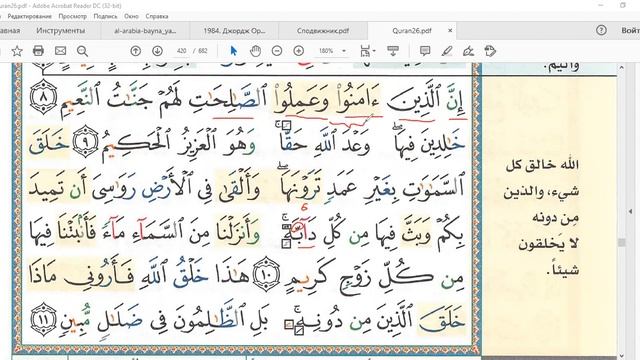 Quran26.pdf - Adobe Acrobat Reader DC (32-bit)
Редактирование Просмотр Подпись Окно Справка
Инструменты
al-arabia-bayna_ya...
1984. Джордж Ор...
Сподвижник.pdf
Quran26.pdf
×
420 / 682
180%
إِنَّ الَّذِينَ ءَامَنُوا۟ وَعَمِلُوا۟ الصَّٰلِحَٰتِ لَهُمْ جَنَّٰتُ النَّعِيمِ ٨
خَٰلِدِينَ فِيهَا ۖ وَعْدَ اللَّهِ حَقًّا ۚ وَهُوَ الْعَزِيزُ الْحَكِيمُ ٩ خَلَقَ
السَّمَٰوَٰتِ بِغَيْرِ عَمَدٍ تَرَوْنَهَا ۖ وَأَلْقَىٰ فِى الْأَرْضِ رَوَٰسِىَ أَن تَمِيدَ
بِكُمْ وَبَثَّ فِيهَا مِن كُلِّ دَآبَّةٍ ۚ وَأَنزَلْنَا مِنَ السَّمَآءِ مَآءً فَأَنۢبَتْنَا فِيهَا
مِن كُلِّ زَوْجٍ كَرِيمٍ ١٠ هَٰذَا خَلْقُ اللَّهِ فَأَرُونِى مَاذَا
خَلَقَ الَّذِينَ مِن دُونِهِۦ ۚ بَلِ الظَّٰلِمُونَ فِى ضَلَٰلٍ مُّبِينٍ ١١
الله خالق كل
شيء، والذين
من دونه
لا يَخلقون
شيئاً.